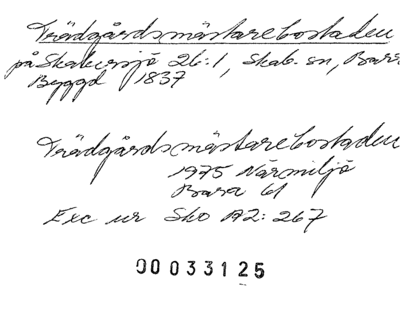 Trädgårdsmästarebostaden
på Skabersjö 26:1, Skab. sn, Bara
Byggd 1837
Trädgårdsmästarebostaden
1975 Närmiljö
Bara 61
Exc ur Sko A2: 267
00033125